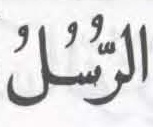 الرُّسُلُ